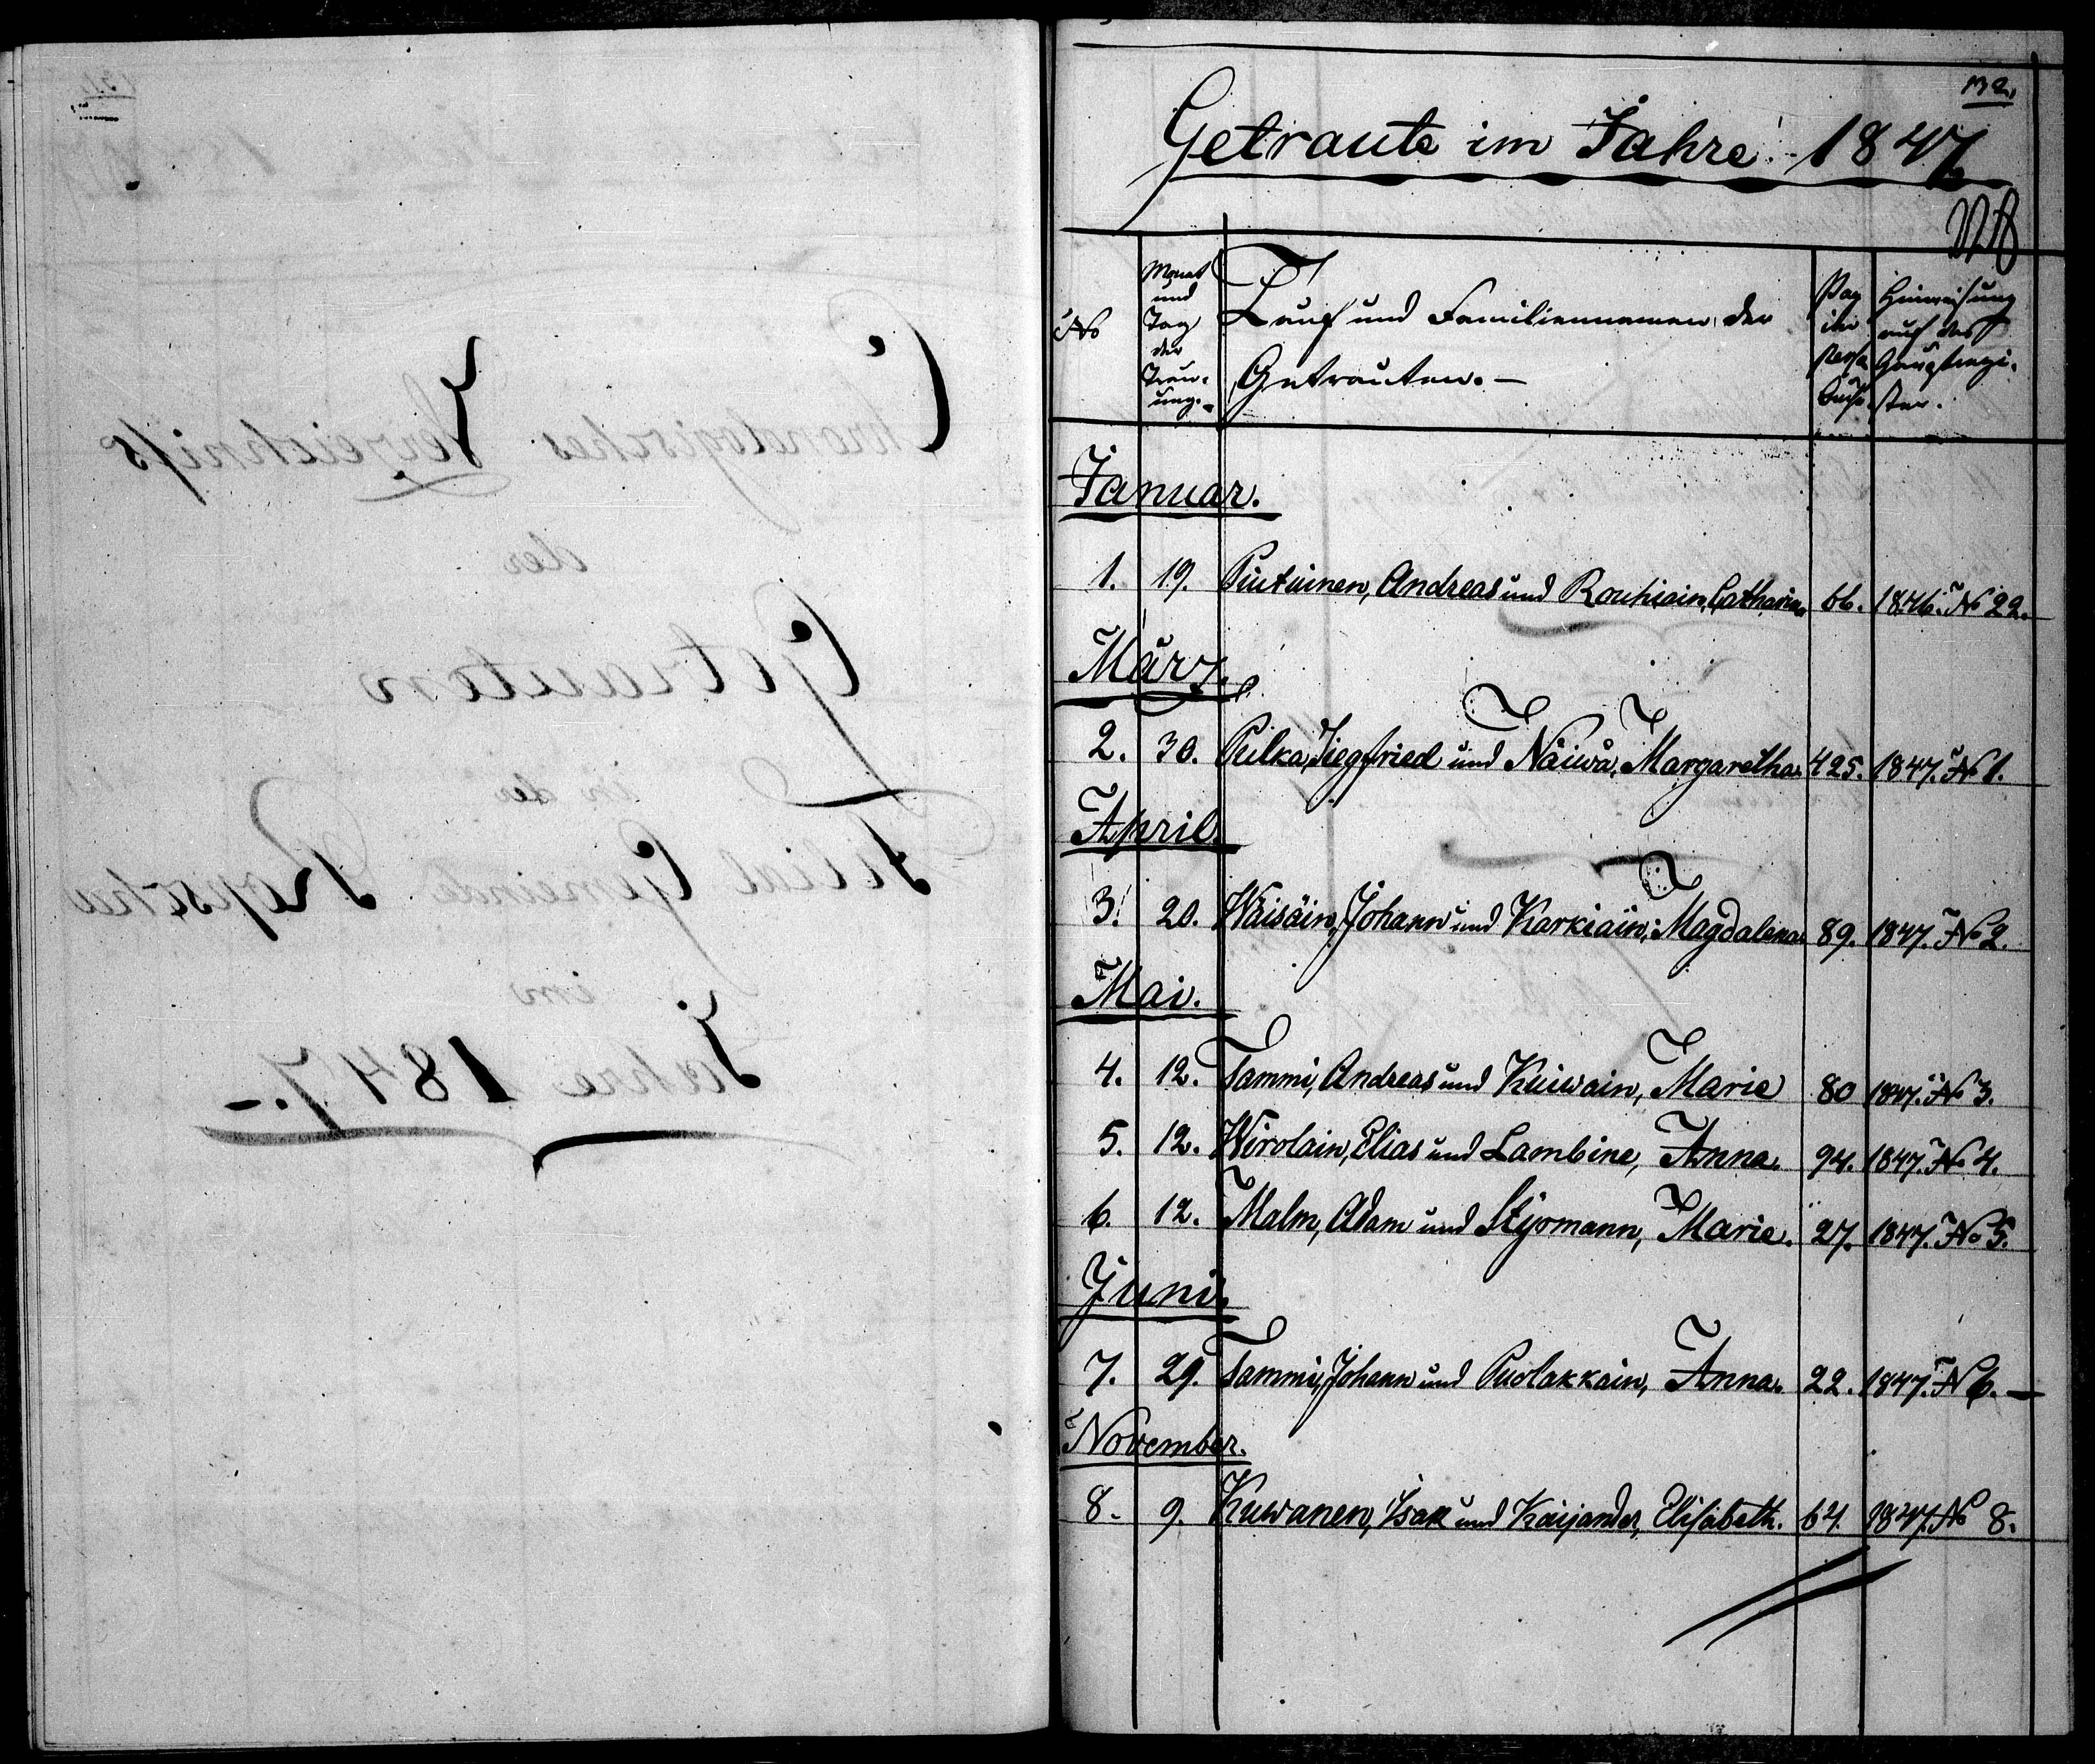 132.
Getraute im Jahre 1847
No
Monat und Tag der Trauung.
Tauf und Familiennamen der Getrauten.—
Pag des Perso Buchs
Hinweisung auf das Hauptregister.
Januar.
1. 19. Piutuinen, Andreas und Rouhiain, Catharina 66. 1846. No 22.
März.
2. 30. Pulka, Siegfried und Näiwä, Margaretha. 425. 1847. No 1.
April.
3. 20. Wäisäin, Johann und Karkiäin, Magdalena 89. 1847. No 2.
Mai.
4. 12. Tammi, Andreas und Kuiwain, Marie 80 1847. No 3.
5. 12. Wirolain, Elias und Lambine, Anna. 94. 1847. No 4.
6. 12. Malm, Adam und Styrmann, Marie. 27. 1847. No 5.
Juni.
7. 29. Tammi, Johann und Puolakkain, Anna. 22. 1847. No 6.—
November.
8. 9. Kuwanen, Isak und Kaijander, Elisabeth. 64. 1847. No 8.
Chronologisches Verzeichniss
der
Getrauten
in der
Filial Gemeinde Ropscha
im
Jahre 1847.-